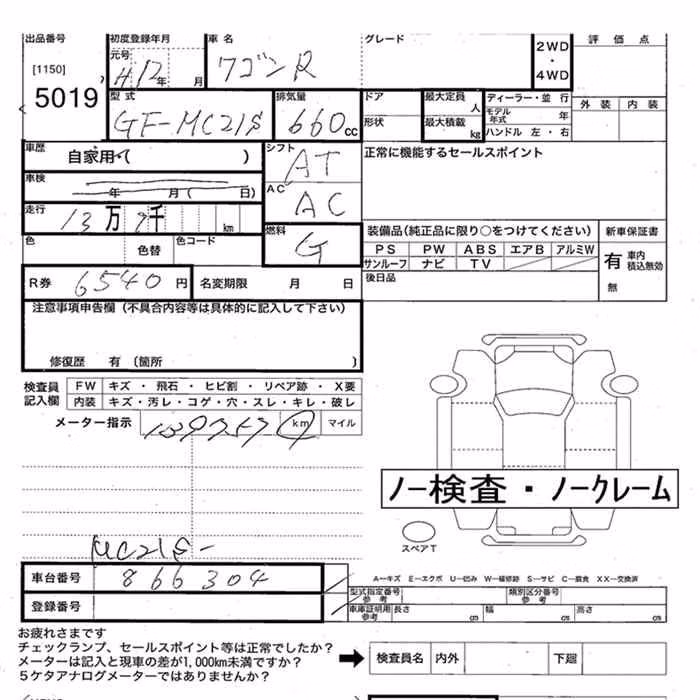 出品番号 初度登録年月 車名 グレード 2WD・4WD 評価点
[1150] 5019 元号 H12年 月 ワゴンR
型式 GF-MC21S 排気量 660cc ドア 形状 最大定員 人 最大積載 kg ディーラー・並行 モデル年式 年 ハンドル 左・右 外装 内装
車歴 自家用( ) シフト AT 正常に機能するセールスポイント
車検 年 月( 日) AC AC
走行 13万 9千 km 燃料 G 装備品(純正品に限り○をつけてください) 新車保証書
色 色替 色コード PS PW ABS エアB アルミW 有 車内積込無効
サンルーフ ナビ TV
R券 6540円 名変期限 月 日 後日品 無
注意事項申告欄(不具合内容等は具体的に記入して下さい)
修復歴 有(箇所 )
検査員 FW キズ・飛石・ヒビ割・リペア跡・X要
記入欄 内装 キズ・汚レ・コゲ・穴・スレ・キレ・破レ
メーター指示 139757 km マイル
ノー検査・ノークレーム
スペアT
MC21S-
車台番号 866304 A-キズ E-エクボ U-凹み W-補修跡 S-サビ C-腐食 XX-交換済
型式指定番号 参考 類別区分番号 参考
登録番号 車庫証明用 参考 長さ cm 幅 cm 高さ cm
お疲れさまです
チェックランプ、セールスポイント等は正常でしたか?
メーターは記入と現車の差が1,000km未満ですか? ➡ 検査員名 内外 下廻
5ケタアナログメーターではありませんか?